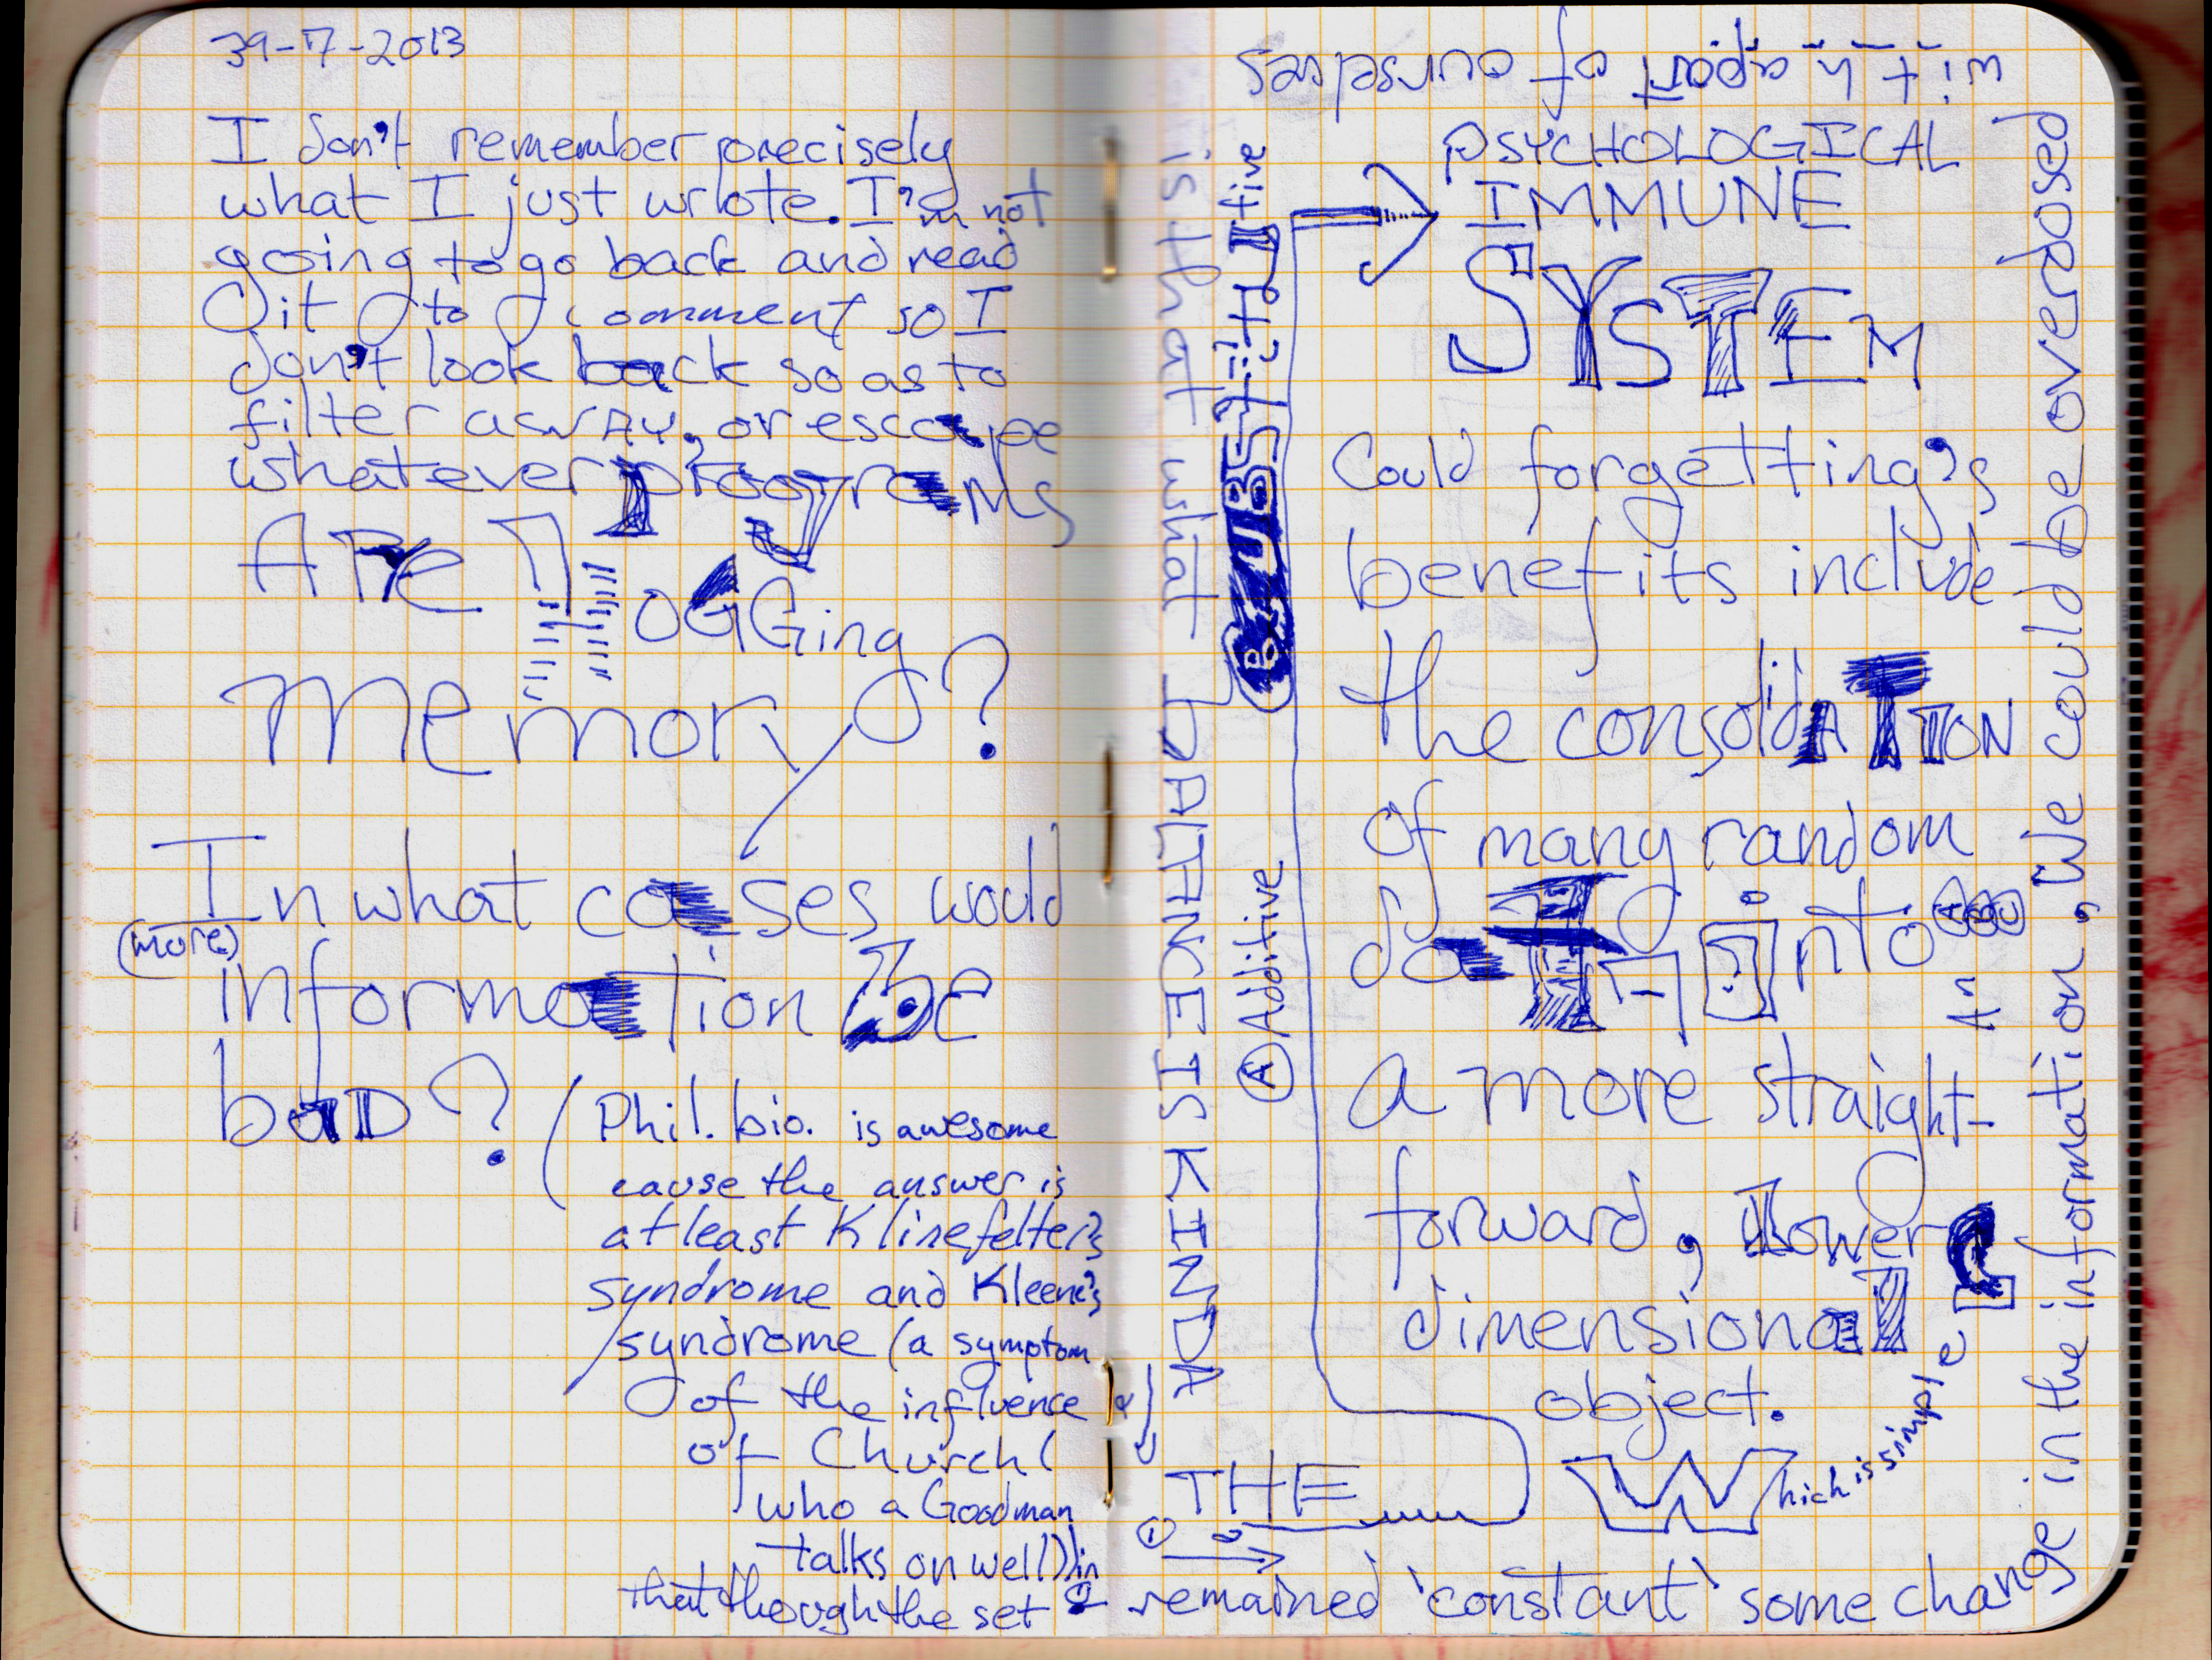 39-7-2013
I don't remember precisely
what I just wrote. I'm not
going to go back and read
it to comment so I
don't look back so as to
filter aswAy, or escape
whatever progrAMS
ARe lOGGing
memory?
In what cases would
(more)
information Be
baD? (Phil. bio. is awesome
cause the answer is
at least Klinefelter's
syndrome and Kleene's
syndrome (a symptom
of the influence
of Church (
who a Goodman
talks on well)) in
that though the set
remained 'constant' some change
in the information, We could be overdosed
with a part of ourselves
is that what
BALANCE IS KINDA
THE
PSYCHOLOGICAL
IMMUNE
SYSTEM
(A) Additive
(B) SUBSTITUTIVE
Could forgetting's
benefits include
the consolidATION
of many random
into
An
a more straight-
forward, Lower
dimensional
object.
Which is simple